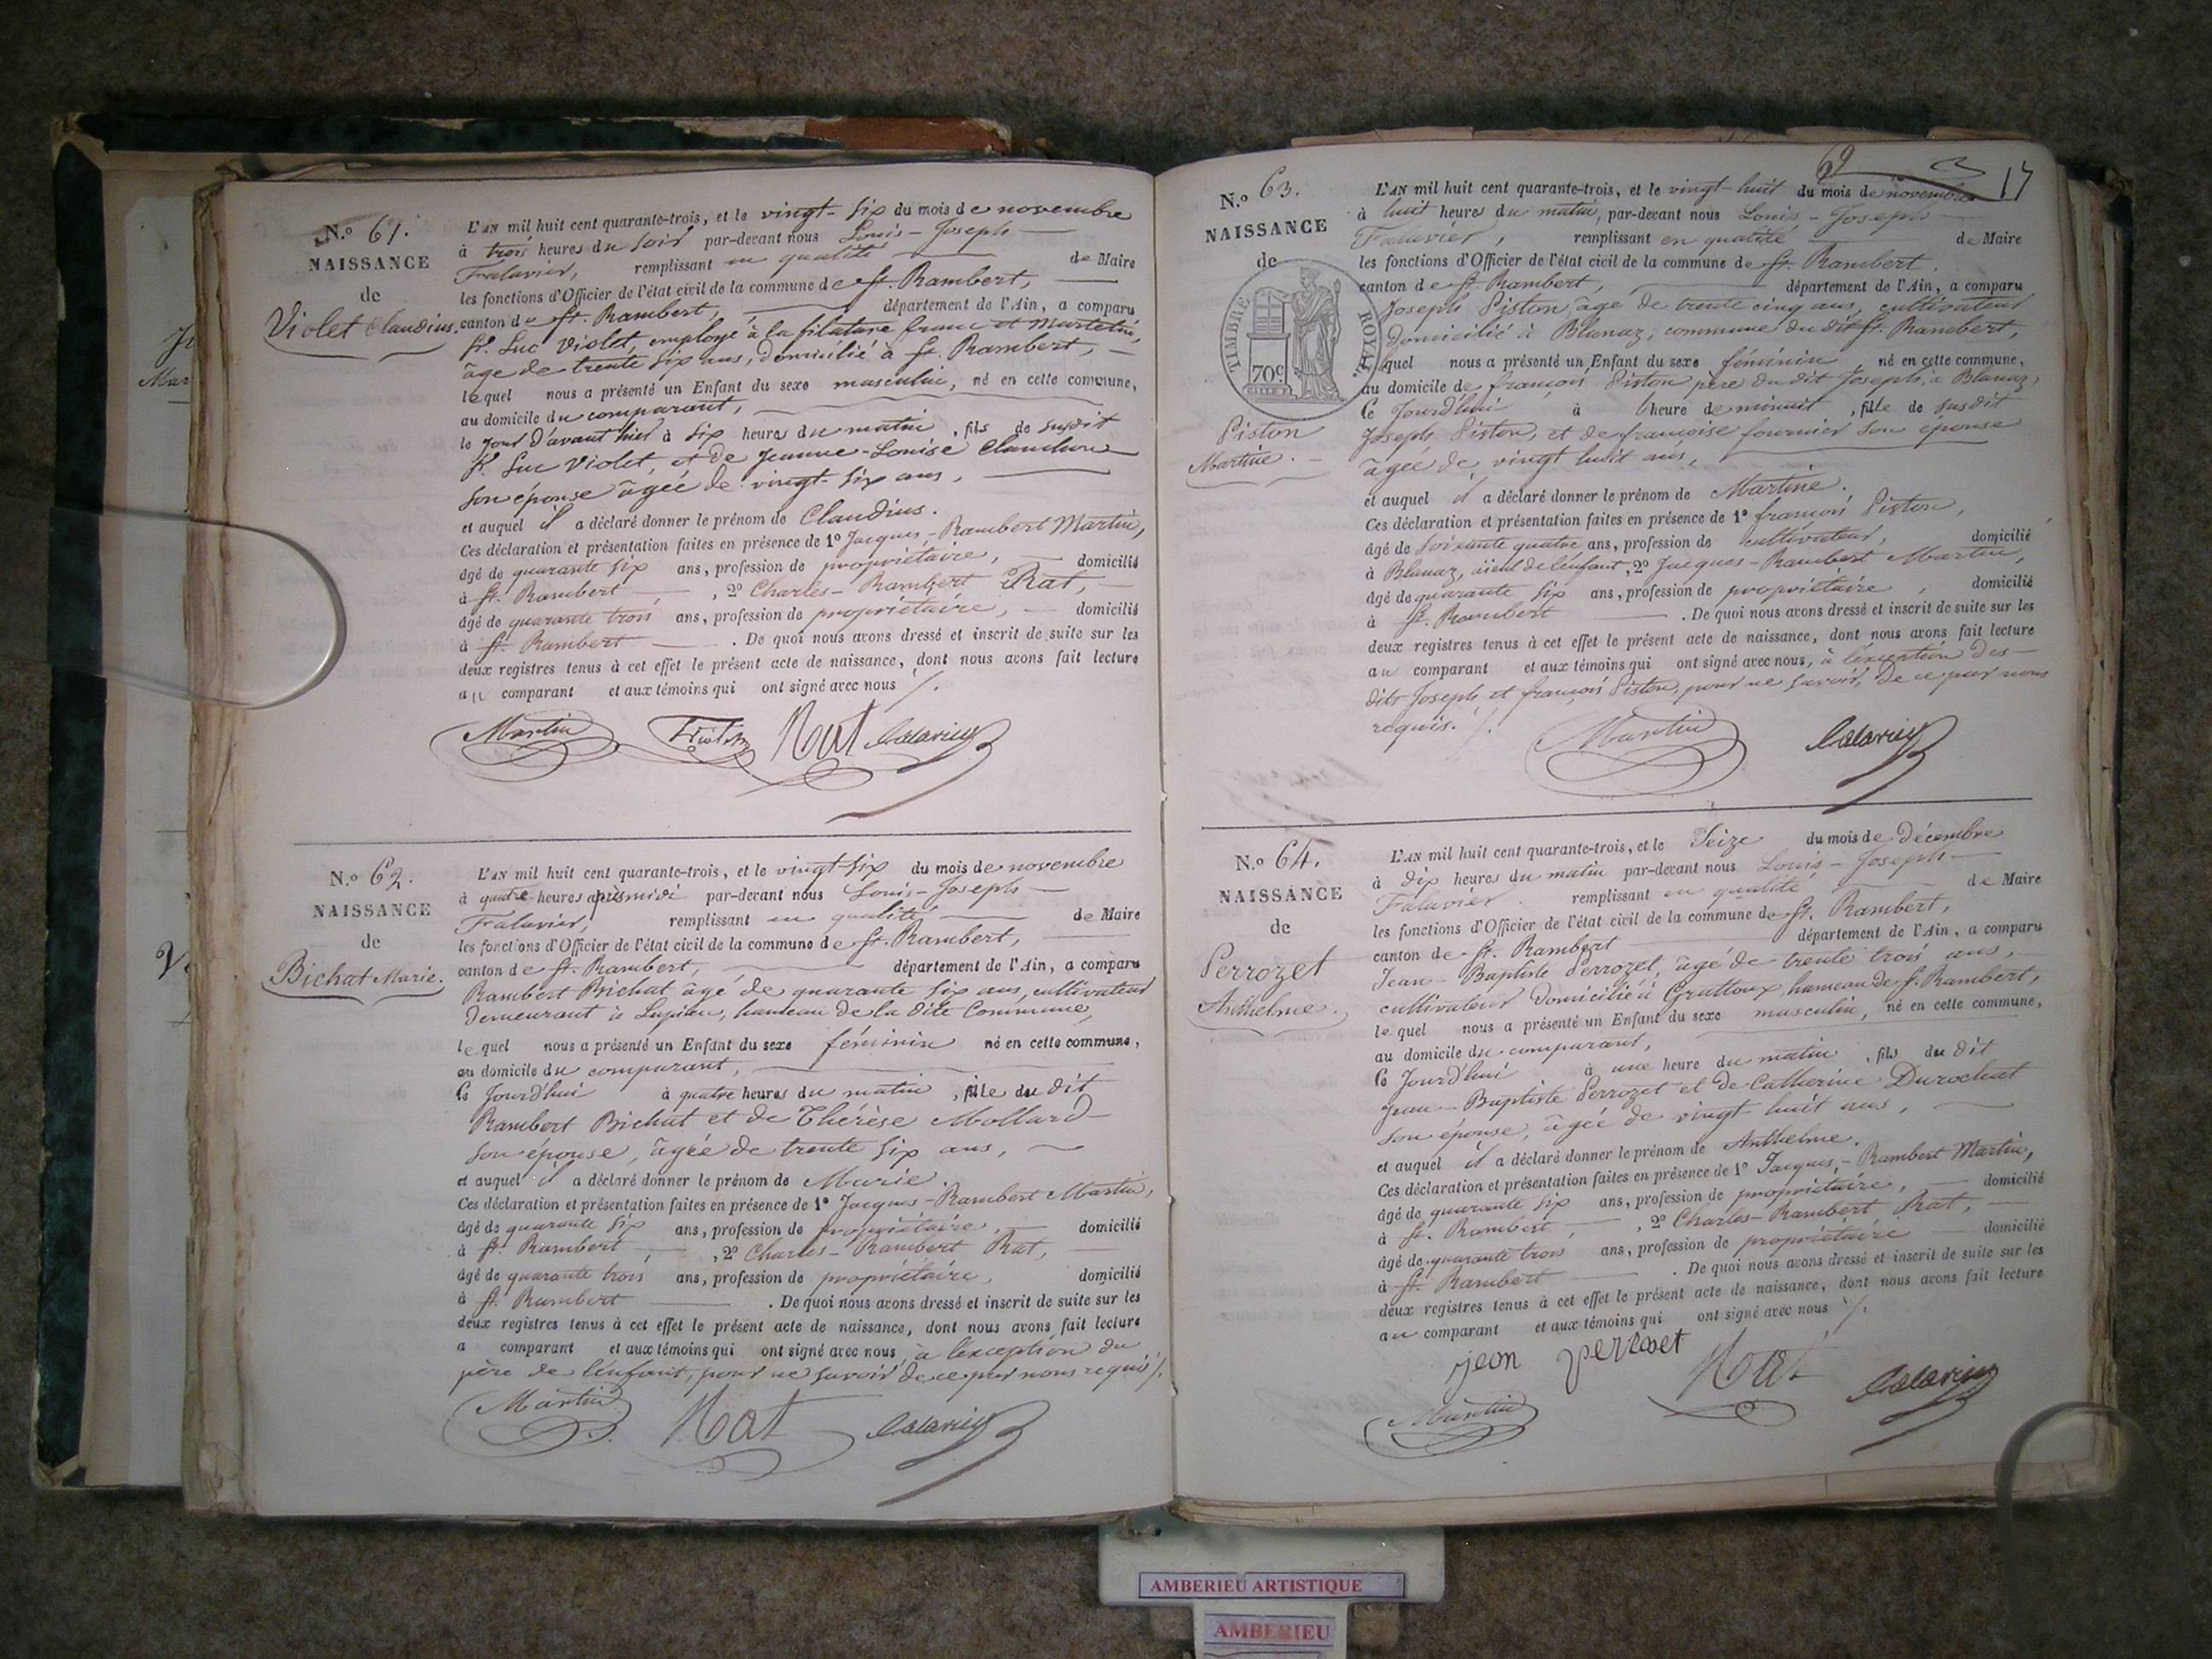 N.o 61.
NAISSANCE
de
Violet Claudius.
L'AN mil huit cent quarante-trois, et le vingt-six du mois de novembre
à trois heures du soir par-devant nous Louis-Joseph
Falavier, remplissant en qualité de Maire
les fonctions d'Officier de l'état civil de la commune de St. Rambert,
canton de St. Rambert, département de l'Ain, a comparu
Luc Violet, employé à la filature franc et Martelin,
âgé de trente six ans, domicilié à St. Rambert,
lequel nous a présenté un Enfant du sexe masculin, né en cette commune,
au domicile du comparant,
le jour d'avant hier à six heures du matin, fils de susdit
Luc Violet, et de Jeanne-Louise
son épouse âgée de vingt-six ans,
et auquel il a déclaré donner le prénom de Claudius.
Ces déclaration et présentation faites en présence de 1o Jacques-Rambert Martin,
âgé de quarante six ans, profession de propriétaire, domicilié
à St. Rambert, 2o Charles-Rambert Rat,
âgé de quarante trois ans, profession de propriétaire, domicilié
à St. Rambert. De quoi nous avons dressé et inscrit de suite sur les
deux registres tenus à cet effet le présent acte de naissance, dont nous avons fait lecture
au comparant et aux témoins qui ont signé avec nous ./.
Martin Violet Rat Falavier
N.o 62.
NAISSANCE
de
Bichat Marie.
L'AN mil huit cent quarante-trois, et le vingt-six du mois de novembre
à quatre heures après midi par-devant nous Louis-Joseph
Falavier, remplissant en qualité de Maire
les fonctions d'Officier de l'état civil de la commune de St. Rambert,
canton de St. Rambert, département de l'Ain, a comparu
Rambert Bichat âgé de quarante six ans, cultivateur
demeurant à Lupieu, hameau de la dite Commune,
lequel nous a présenté un Enfant du sexe féminin né en cette commune,
au domicile du comparant,
Ce Jourd'hui à quatre heures du matin, fille du dit
Rambert Bichat et de Thérèse Mollard
son épouse, âgée de trente six ans,
et auquel il a déclaré donner le prénom de Marie.
Ces déclaration et présentation faites en présence de 1o Jacques-Rambert Martin,
âgé de quarante six ans, profession de propriétaire, domicilié
à St. Rambert, 2o Charles-Rambert Rat,
âgé de quarante trois ans, profession de propriétaire, domicilié
à St. Rambert. De quoi nous avons dressé et inscrit de suite sur les
deux registres tenus à cet effet le présent acte de naissance, dont nous avons fait lecture
a comparant et aux témoins qui ont signé avec nous, à l'exception du
père de l'enfant, pour ne savoir de ce par nous requis ./.
Martin Rat Falavier
17
N.o 63.
NAISSANCE
de
TIMBRE ROYAL
70c
Piston
Martine.
L'AN mil huit cent quarante-trois, et le vingt-huit du mois de novembre
à huit heures du matin, par-devant nous Louis-Joseph
Falavier, remplissant en qualité de Maire
les fonctions d'Officier de l'état civil de la commune de St. Rambert,
canton de St. Rambert, département de l'Ain, a comparu
Joseph Piston, âgé de trente cinq ans, cultivateur
domicilié à Blanaz, commune du dit St. Rambert,
lequel nous a présenté un Enfant du sexe féminin, né en cette commune,
au domicile de françois Piston père du dit Joseph, à Blanaz,
Ce Jourd'hui à l'heure de minuit, fille de susdit
Joseph Piston, et de françoise fournier son épouse
âgée de vingt huit ans,
et auquel il a déclaré donner le prénom de Martine.
Ces déclaration et présentation faites en présence de 1o françois Piston,
âgé de soixante quatre ans, profession de cultivateur, domicilié
à Blanaz, aïeul de l'enfant, 2o Jacques-Rambert Martin,
âgé de quarante six ans, profession de propriétaire, domicilié
à St. Rambert. De quoi nous avons dressé et inscrit de suite sur les
deux registres tenus à cet effet le présent acte de naissance, dont nous avons fait lecture
au comparant et aux témoins qui ont signé avec nous, à l'exception des
dits Joseph et françois Piston, pour ne savoir, de ce par nous
requis. ./.
Martin Falavier
N.o 64.
NAISSANCE
de
Perrozet
Anthelme.
L'AN mil huit cent quarante-trois, et le Seize du mois de décembre
à dix heures du matin par-devant nous Louis-Joseph
Falavier remplissant en qualité de Maire
les fonctions d'Officier de l'état civil de la commune de St. Rambert,
canton de St. Rambert département de l'Ain, a comparu
Jean-Baptiste Perrozet, âgé de trente trois ans,
cultivateur domicilié à Grattoux, hameau de St. Rambert,
lequel nous a présenté un Enfant du sexe masculin, né en cette commune,
au domicile du comparant,
Ce Jourd'hui à une heure du matin, fils du dit
Jean-Baptiste Perrozet et de Catherine Durochat
son épouse, âgée de vingt-huit ans,
et auquel il a déclaré donner le prénom de Anthelme.
Ces déclaration et présentation faites en présence de 1o Jacques-Rambert Martin,
âgé de quarante six ans, profession de propriétaire, domicilié
à St. Rambert, 2o Charles-Rambert Rat,
âgé de quarante trois ans, profession de propriétaire domicilié
à St. Rambert. De quoi nous avons dressé et inscrit de suite sur les
deux registres tenus à cet effet le présent acte de naissance, dont nous avons fait lecture
au comparant et aux témoins qui ont signé avec nous ./.
jean Rat
Martin Falavier
AMBERIEU ARTISTIQUE
AMBERIEU